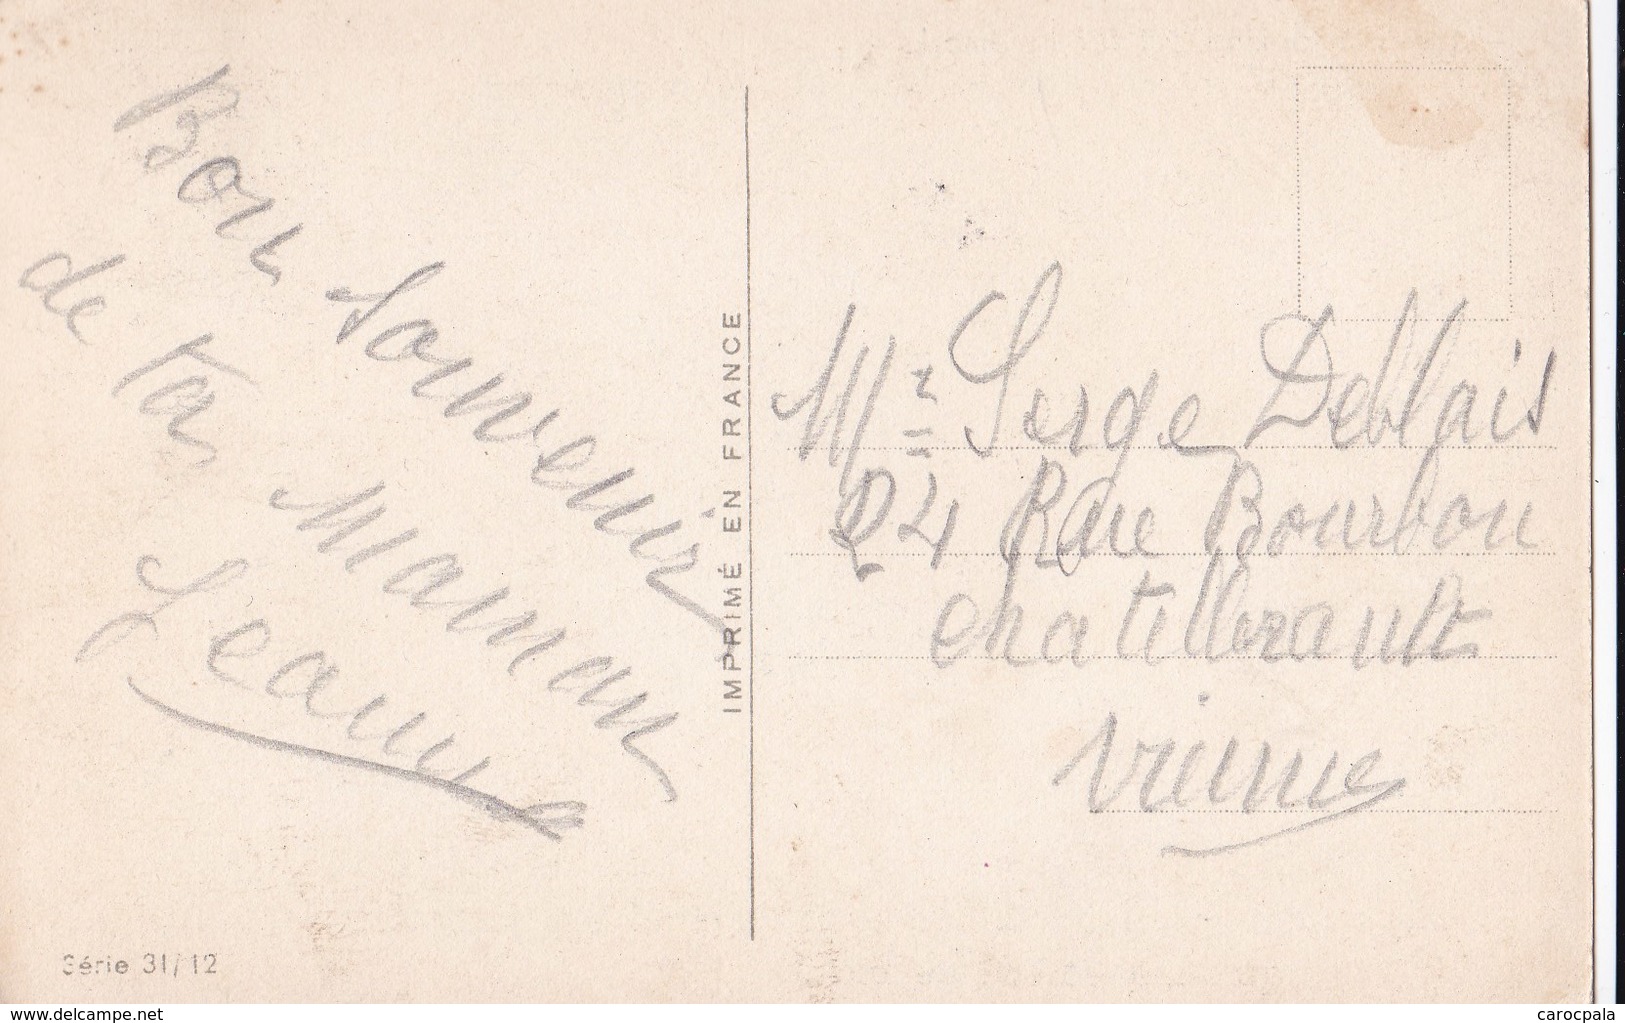 Bon Souvenir
de ta Maman
Jeanne
IMPRIMÉ EN FRANCE
Mr Serge Deblais
24 Rue Bourbon
chatellerault
Vienne
Série 31/12
www.delcampe.net
carocpala